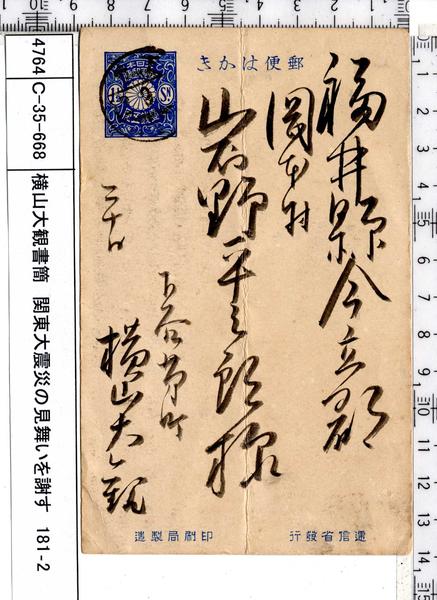 4764 C-35-668 横山大観書簡 関東大震災の見舞いを謝す 181-2
郵便はがき
福井縣今立郡
岡本村
岩野平三郎様
二十日
下谷茅町
横山大観
逓信省發行
印刷局製造